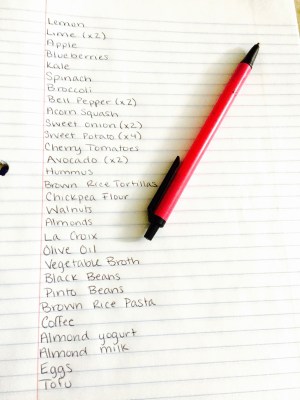 Lemon
Lime (x2)
Apple
Blueberries
Kale
Spinach
Broccoli
Bell Pepper (x2)
Acorn Squash
Sweet onion (x2)
Sweet Potato (x4)
Cherry Tomatoes
Avocado (x2)
Hummus
Brown Rice Tortillas
Chickpea Flour
Walnuts
Almonds
La Croix
Olive Oil
Vegetable Broth
Black Beans
Pinto Beans
Brown Rice Pasta
Coffee
Almond yogurt
Almond milk
Eggs
Tofu